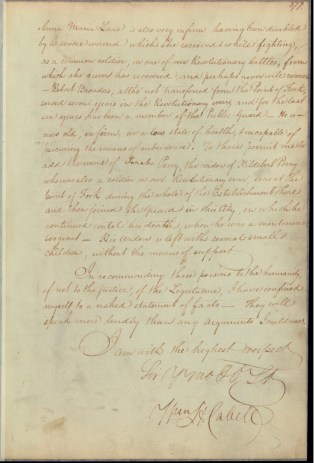 Anna Maria Lane is also very infirm, having been disabled
by a severe wound which she received while fighting,
as a common soldier, in one of our Revolutionary battles, from
which she never has recovered, and perhaps never will recover
Robert Broades, altho not transferred from the Point of Fork,
served seven years in the Revolutionary war; and for the last
six years has been a member of the Public Guard. He is now
old, infirm, in a low state of health,
the means of subsistence. To these permit me to
add the name of Perry the widow of Hilderbert Perry
who was also a soldier in our Revolutionary War, was at the
Point of Fork during the whole of the Establishment there
and then joined the guard in this City, in which he
continued until his death, when he was a
sergeant — His widow is left with several small
children, without the means of support
In recommending these persons to the humanity
if not to the justice, of the Legislature, I have confined
myself to a naked statement of facts — They will
speak more loudly than any arguments I could use
I am with the highest respect
Sir Yr mo Ob St
Wm H Cabell